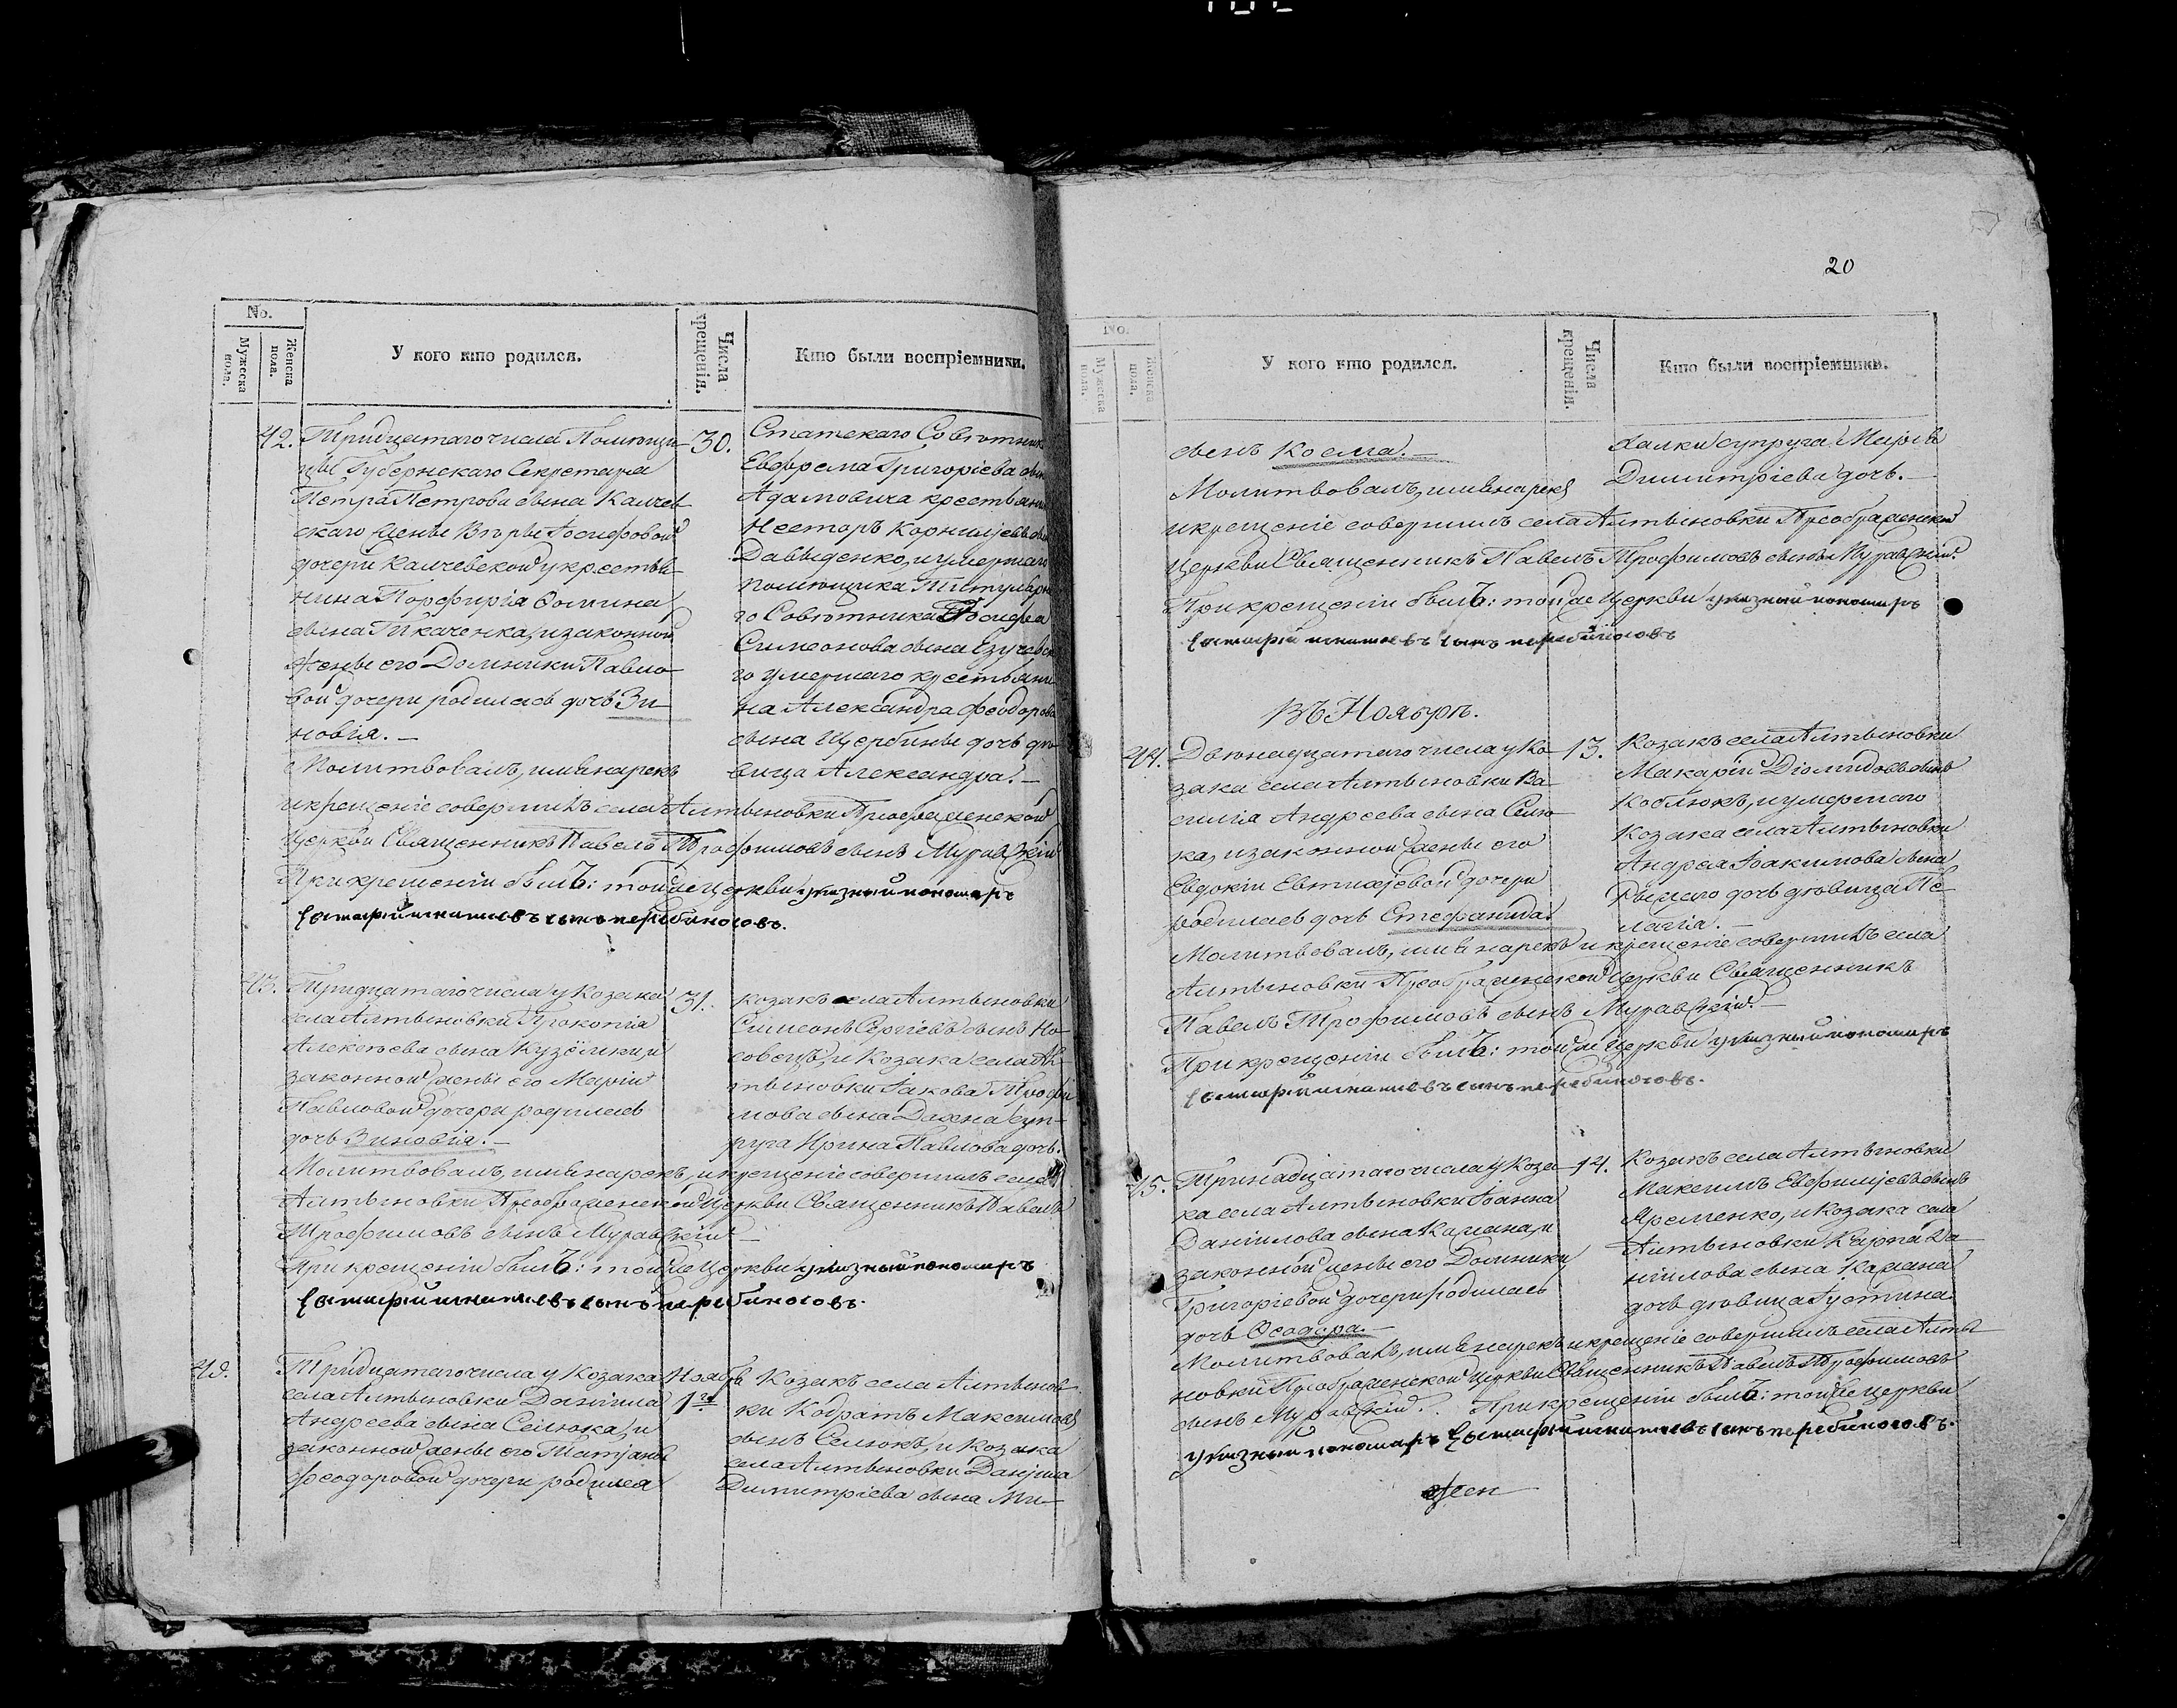 No.
Мужеска пола.
Женска пола.
У кого кто родился.
Числа крещенія.
Кто были воспріемники.
42.
Тридцатаго числа Помѣщи-
цы Губернскаго Секретаря
Петра Петрова сына Калчев
скаго жены Вѣры Іосифовой
дочери Калчевской у крестья
нина Порфирія Фомина
сына Ткаченка, и законной
жены его Домники Павло
вой дочери родилась дочь Зи
новія. —
Молитвовалъ, имя нарекъ
и крещеніе совершилъ села Алтыновки Преображенской
Церкви Священникъ Павелъ Трофимовъ сынъ Муравскій
При крещеніи былъ: тойже Церкви указный пономарь
30.
Статскаго Совѣтника
Евфрема Григоріева сына
Адамовича крестьянинъ
Несторъ Корниліевъ сынъ
Давыденко, и умершаго
помѣщика Титулярна
го Совѣтника Іосифа
Симеонова сына
го умершаго крестьяни
на Александра Феодорова
сына Щербины дочь дѣ
вица Александра. —
43.
Тридцатаго числа у Козака
села Алтыновки Прокопія
Алексѣева сына Кузёмки, и
законной жены его Маріи
Павловой дочери родилась
дочь Зиновія. —
Молитвовалъ, имя нарекъ, и крещеніе совершилъ села
Алтыновки Преображенской Церкви Священникъ Павелъ
Трофимовъ сынъ Муравскій —
При крещеніи былъ: тойже Церкви указный пономарь
31.
козакъ села Алтыновки
Симеонъ Сергіевъ сынъ Но
совецъ, и Козака села Ал
тыновки Іакова Трофи
мова сына Дахна суп-
руга Ирина Павлова дочь.
49.
Тридцатаго числа у Козака
села Алтыновки Даніила
Андреева сына Селюка, и
законной жены его Татіаны
Феодоровой дочери родился
Ноябр
1го
Козакъ села Алтынов
ки Кодратъ Максимовъ
сынъ Селюкъ, и Козака
села Алтыновки Даніила
Димитріева сына Ми-
20
No.
Мужеска пола.
Женска пола.
У кого кто родился.
Числа крещенія.
Кто были воспріемники.
сынъ Косма. —
Молитвовалъ, имя нарекъ
и крещеніе совершилъ села Алтыновки Преображенской
Церкви Священникъ Павелъ Трофимовъ сынъ Муравскій.
При крещеніи былъ: тойже Церкви указный пономарь
халки супруга Марія
Димитріева дочь. —
Въ Ноябрѣ.
44.
Двѣнадцатаго числа у Ко-
зака села Алтыновки Ва
силія Андреева сына Селю
ка, и законной жены его
Евдокіи Евтихіевой дочери
родилась дочь Стефанида.
Молитвовалъ, имя нарекъ и крещеніе совершилъ села
Алтыновки Преображенской Церкви Священникъ
Павелъ Трофимовъ сынъ Муравскій. —
При крещеніи былъ: тойже Церкви указный пономарь
13.
Козакъ села Алтыновки
Макарій Діомидовъ сынъ
Коблюкъ, и умершаго
Козака села Алтыновки
Андрея Іоакимова сына
Рыжаго дочь дѣвица Пе
лагія. —
45.
Тринадцатаго числа у Коза
ка села Алтыновки Іоанна
Даніилова сына Кармана, и
законной жены его Домники
Григоріевой дочери родилась
дочь Ѳеодора. —
Молитвовалъ, имя нарекъ и крещеніе совершилъ села Алты
новки Преображенской Церкви Священникъ Павелъ Трофимовъ
сынъ Муравскій. При крещеніи былъ: тойже Церкви
указный пономарь
14.
Козакъ села Алтыновки
Максимъ Евфиміевъ сынъ
Яременко, и Козака села
Алтыновки Кирила Да
ніилова сына Кармана
дочь дѣвица Іустина.